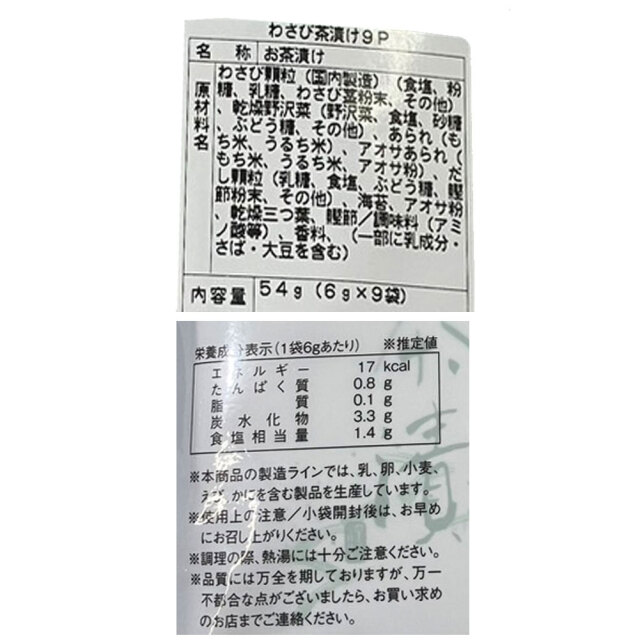 わさび茶漬け9P
名称 お茶漬け
原材料名 わさび顆粒（国内製造）（食塩、粉
糖、乳糖、わさび茎粉末、その他）
、乾燥野沢菜（野沢菜、食塩、砂糖
、ぶどう糖、その他）、あられ（も
ち米、うるち米）、アオサあられ（
もち米、うるち米、アオサ粉）、だ
し顆粒（乳糖、食塩、ぶどう糖、鰹
節粉末、その他）、海苔、アオサ粉
、乾燥三つ葉、鰹節／調味料（アミ
ノ酸等）、香料、（一部に乳成分・
さば・大豆を含む）
内容量 54g（6g×9袋）
栄養成分表示（1袋6gあたり） ※推定値
エネルギー 17 kcal
たんぱく質 0.8 g
脂質 0.1 g
炭水化物 3.3 g
食塩相当量 1.4 g
※本商品の製造ラインでは、乳、卵、小麦、
えび、かにを含む製品を生産しています。
※使用上の注意／小袋開封後は、お早め
にお召し上がりください。
※調理の際、熱湯には十分ご注意ください。
※品質には万全を期しておりますが、万一
不都合な点がございましたら、お買い求め
のお店までご連絡ください。